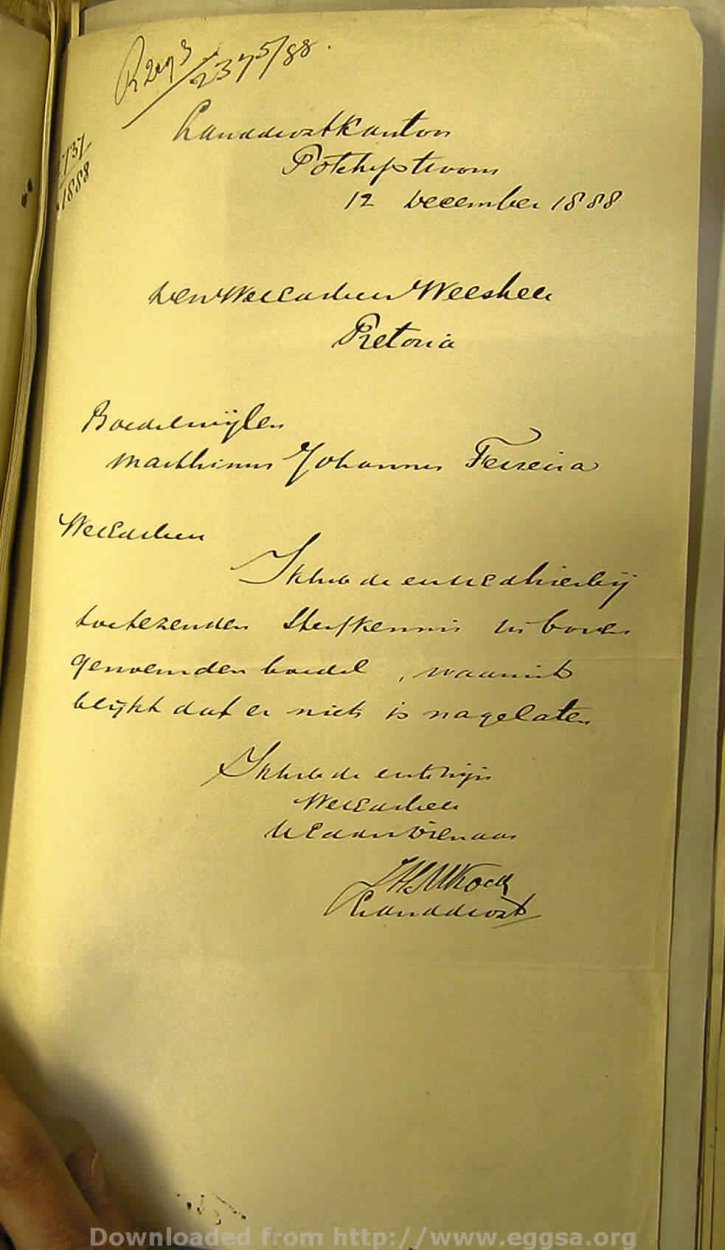 R2293/2375/88.
Landdrostkantoor
Potchefstroom
12 December 1888
Den WelEdelen Heer Weesheer
Pretoria
Boedel wijlen
Marthinus Johannes Fereira
WelEdelen Heer
Ik heb de eer UEd hierbij
toetezenden Sterfkennis in boven
genoemden boedel, waaruit
blijkt dat er niets is nagelaten
Ik heb de eer te zijn
WelEdele Heer
UEd dw Dienaar
Landdrost
1888
Downloaded from http://www.eggsa.org